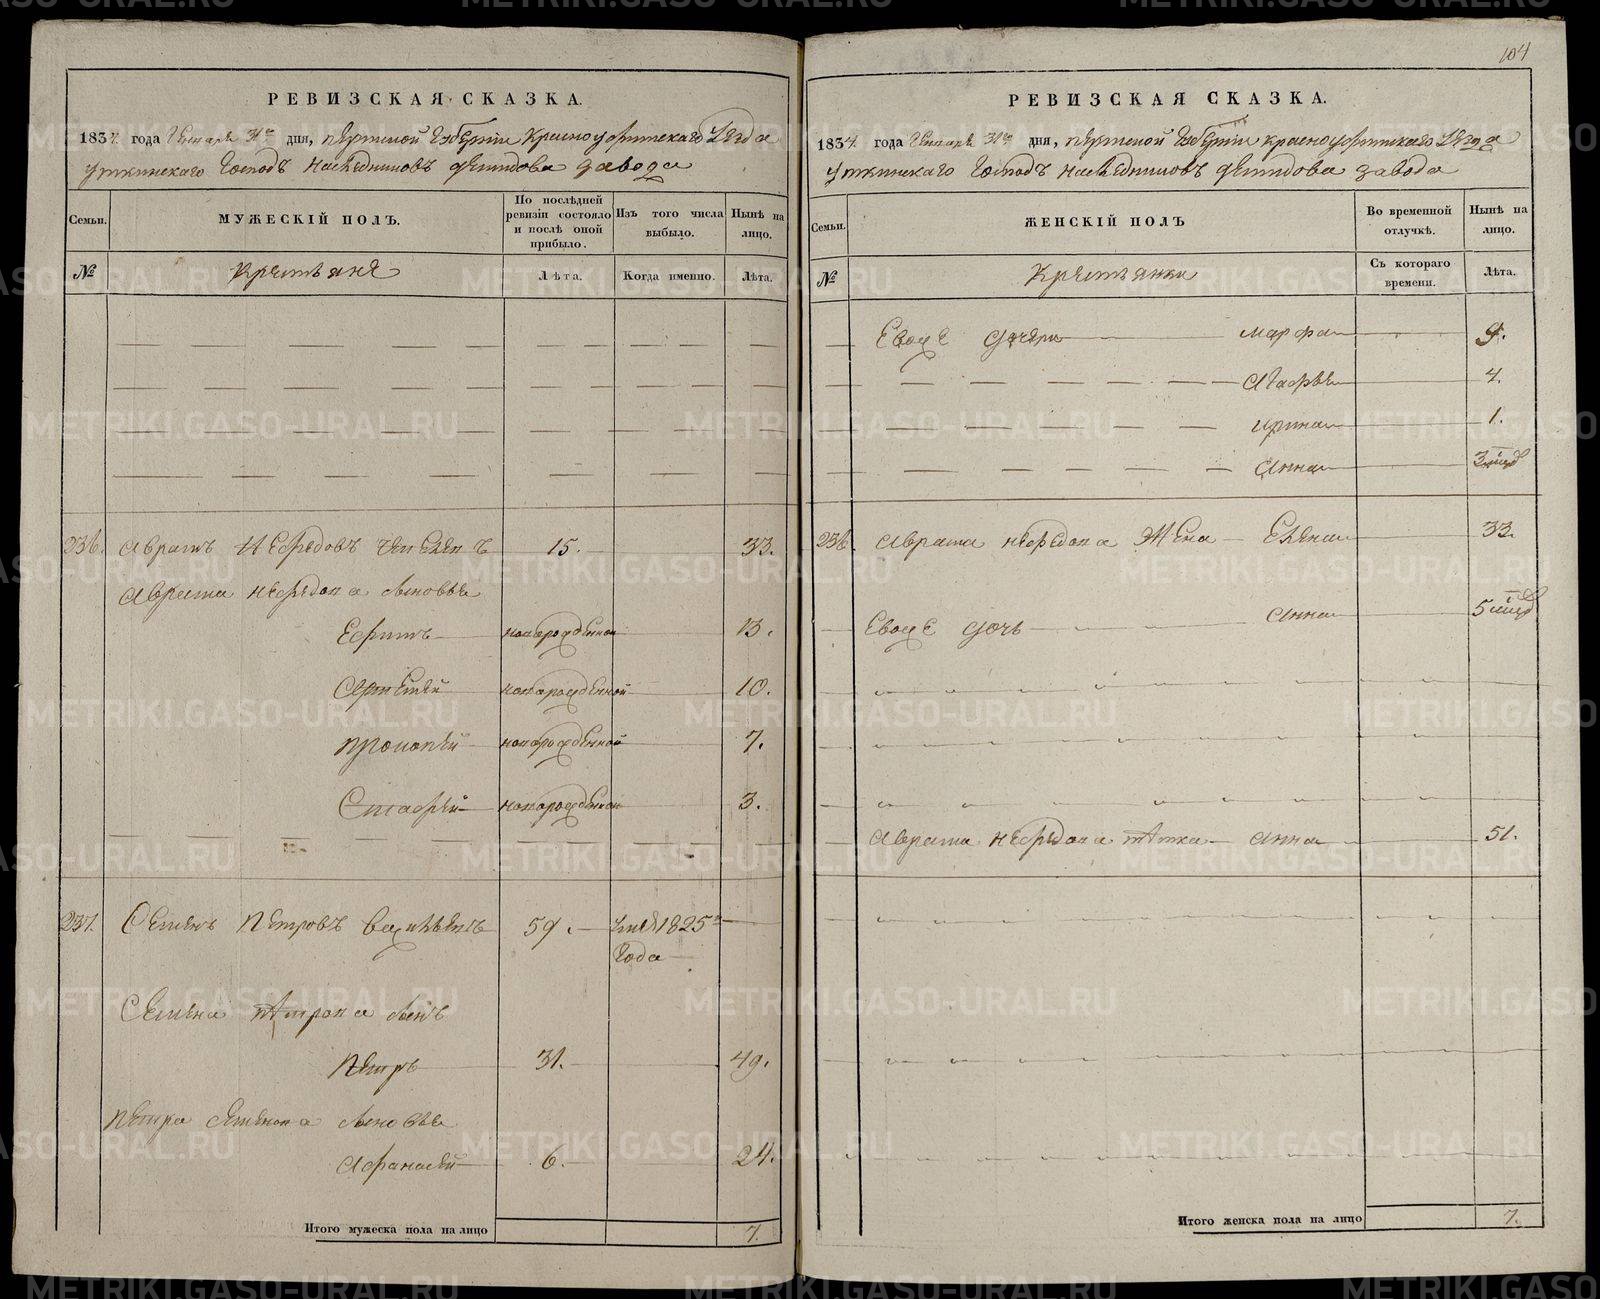 РЕВИЗСКАЯ СКАЗКА.
1834. года Генваря 31го дня, Пермской Губернии Красноуфимскаго Уезда
Уткинскаго Господъ Наследниковъ Демидова завода
Семьи.
МУЖЕСКІЙ ПОЛЪ.
По послѣдней ревизіи состояло и послѣ оной прибыло.
Изъ того числа выбыло.
Нынѣ на лицо.
№
Крестьяне
Лѣта.
Когда именно.
Лѣта.
236. Аврамъ Нефедовъ 15. 33.
Аврама Нефедова сыновья
Ефимъ новорожденной 13.
Артемей новорожденной 10.
Прокопей новорожденной 7.
Евстафей новорожденной 3.
237. Семенъ Петровъ 59. 1825го
года
Семена Петрова сынъ
Петръ 31. 49.
Петра Семенова сыновья
Афанасей 6. 24.
Итого мужеска пола на лицо 7.
104
РЕВИЗСКАЯ СКАЗКА.
1834. года Генваря 31го дня, Пермской Губернии Красноуфимскаго Уезда
Уткинскаго Господъ Наследниковъ Демидова завода
Семьи.
ЖЕНСКІЙ ПОЛЪ
Во временной отлучкѣ.
Нынѣ на лицо.
№
Крестьянки
Съ котораго времени.
Лѣта.
Евоже дочери Марфа 9.
Агафья 4.
Ирина 1.
Анна 3 мид
236. Аврама Нефедова жена Елена 33.
Евоже дочь Анна 5 мид
Аврама Нефедова тетка Анна 51.
Итого женска пола на лицо 7.
METRIKI.GASO-URAL.RU